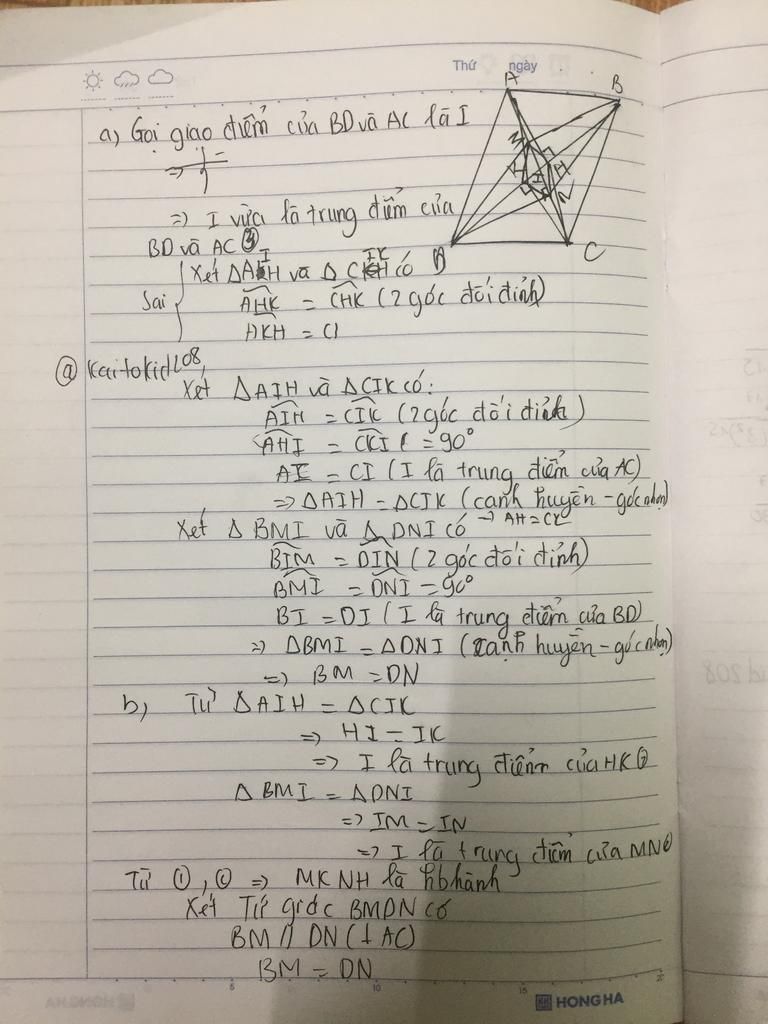 Thứ ngày
A
B
a, Gọi giao điểm của BD và AC là I
M
K
I
H
N
=> I vừa là trung điểm của
BD và AC
D
C
Sai
Xét ΔAIH và ΔCIK có
AHK = CHK (2 góc đối đỉnh)
AKH = CI
@ kaitokid208,
Xét ΔAIH và ΔCIK có:
AIH = CIK (2 góc đối đỉnh)
AHI = CKI ( = 90°
AI = CI (I là trung điểm của AC)
=> ΔAIH = ΔCIK (cạnh huyền - góc nhọn)
-> AH = CK
Xét ΔBMI và ΔDNI có
BIM = DIN (2 góc đối đỉnh)
BMI = DNI = 90°
BI = DI (I là trung điểm của BD)
=> ΔBMI = ΔDNI (cạnh huyền - góc nhọn)
=> BM = DN
b, Từ ΔAIH = ΔCIK
=> HI = IK
=> I là trung điểm của HK
ΔBMI = ΔDNI
=> IM = IN
=> I là trung điểm của MN
Từ ①, ② => MKNH là hbhành
Xét Tứ giác BMDN có
BM // DN (⊥ AC)
BM = DN
5 10 15
HONG HA